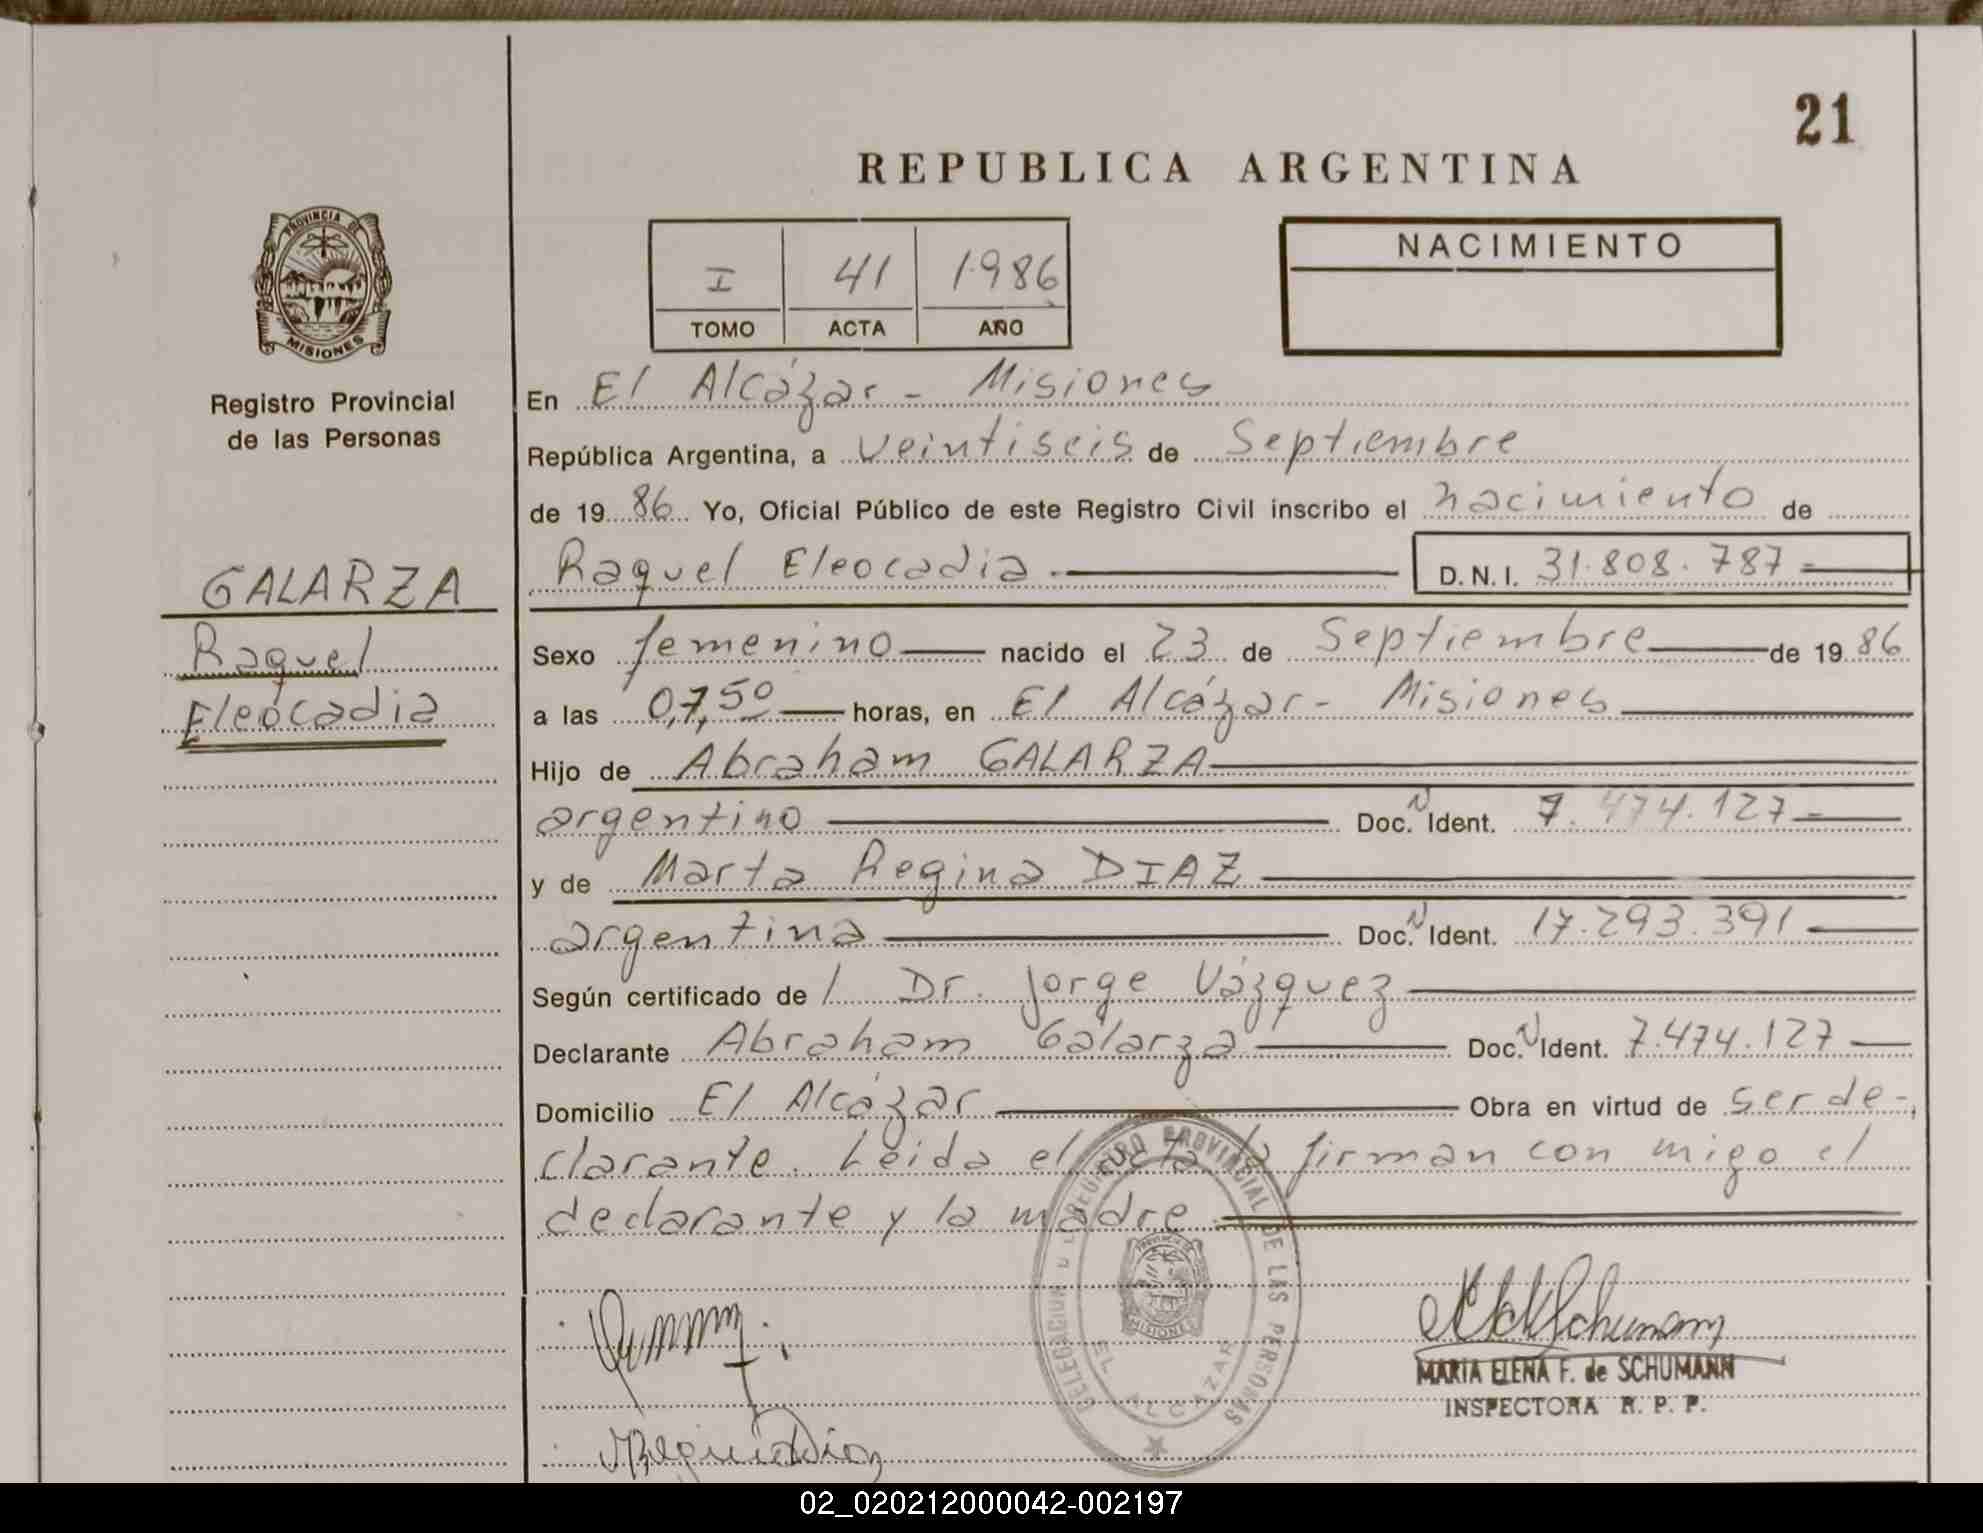 21
REPUBLICA ARGENTINA
PROVINCIA DE
MISIONES
Registro Provincial
de las Personas
I 41 1986
TOMO ACTA AÑO
NACIMIENTO
En El Alcázar - Misiones
República Argentina, a veintiseis de Septiembre
de 19 86 Yo, Oficial Público de este Registro Civil inscribo el nacimiento de
Raquel Eleocadia D.N.I. 31.808.787
GALARZA
Raquel
Eleocadia
Sexo femenino nacido el 23 de Septiembre de 19 86
a las 07,50 horas, en El Alcázar - Misiones
Hijo de Abraham GALARZA
argentino Doc. N Ident. 7.474.127
y de Marta Regina DIAZ
argentina Doc. N Ident. 17.293.391
Según certificado de Dr. Jorge Vázquez
Declarante Abraham Galarza Doc. N Ident. 7.474.127
Domicilio El Alcázar Obra en virtud de ser de-
clarante. Leida el acta la firman con migo el
declarante y la madre
REGISTRO PROVINCIAL DE LAS PERSONAS
DELEGACION
PROVINCIA DE
MISIONES
EL ALCAZAR
MARIA ELENA F. de SCHUMANN
INSPECTORA R. P. P.
02_020212000042-002197